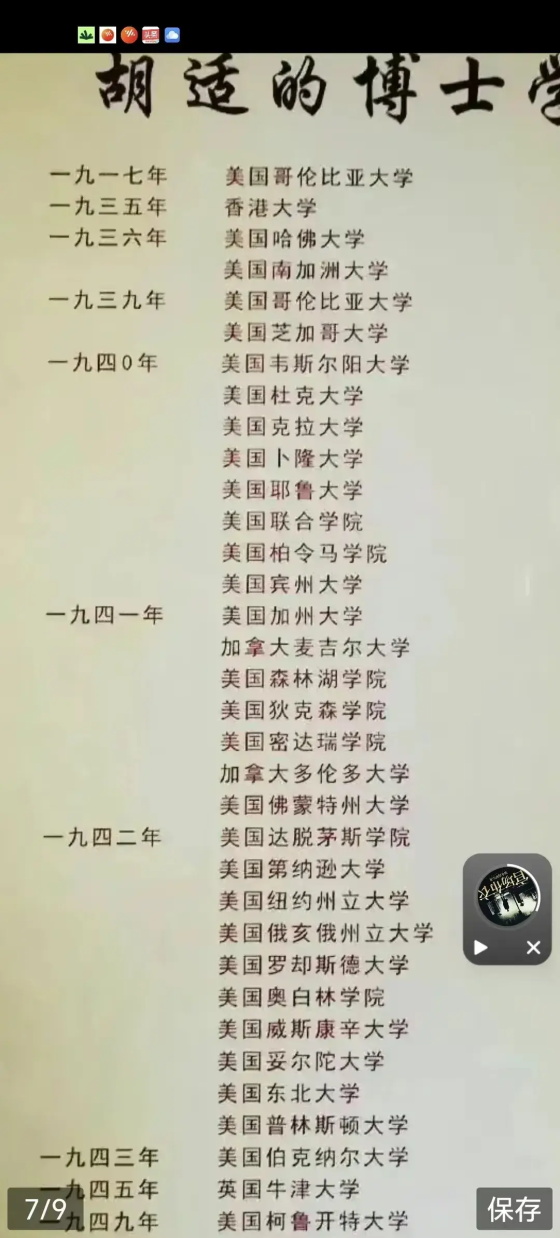 胡适的博士学
一九一七年 美国哥伦比亚大学
一九三五年 香港大学
一九三六年 美国哈佛大学
美国南加洲大学
一九三九年 美国哥伦比亚大学
美国芝加哥大学
一九四0年 美国韦斯尔阳大学
美国杜克大学
美国克拉大学
美国卜隆大学
美国耶鲁大学
美国联合学院
美国柏令马学院
美国宾州大学
一九四一年 美国加州大学
加拿大麦吉尔大学
美国森林湖学院
美国狄克森学院
美国密达瑞学院
加拿大多伦多大学
美国佛蒙特州大学
一九四二年 美国达脱茅斯学院
美国第纳逊大学
美国纽约州立大学
美国俄亥俄州立大学
美国罗却斯德大学
美国奥白林学院
美国威斯康辛大学
美国妥尔陀大学
美国东北大学
美国普林斯顿大学
一九四三年 美国伯克纳尔大学
一九四五年 英国牛津大学
一九四九年 美国柯鲁开特大学
7/9
保存